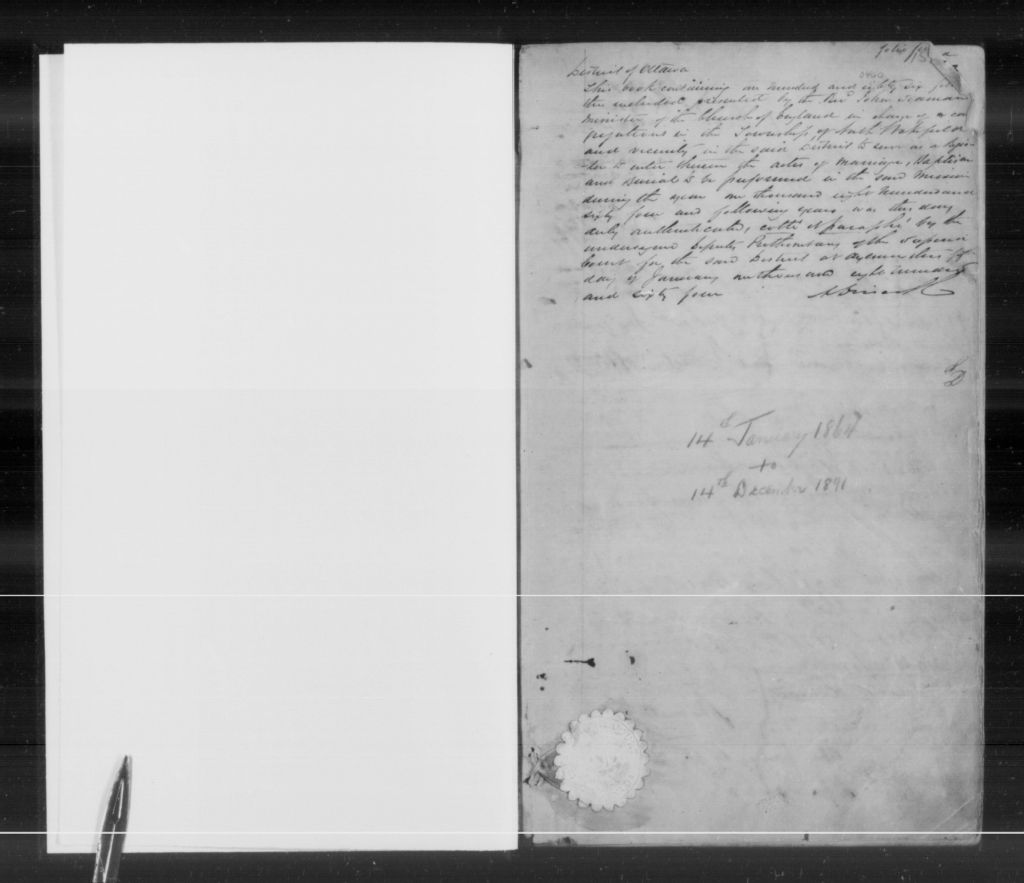 folio
District of Ottawa
This book containing one hundred and eighty six
presented by the Revd John Seaman
minister of the Church of England in charge of a con
gregations in the Township of North Wakefield
and vicinity in the said District to serve as a Regis
ter to enter therein the actes of marriage, Baptism
and Burial to be preformed in the said Mission
during the year one thousand eight hundred and
sixty four and following years was this day
duly authenticated, cotté et paraphé by the
undersigned Deputy Prothonotary of the Superior
Court for the said District at Aylmer this
day of January one thousand eight hundred
and sixty four
14th January 1864
to
14th December 1891